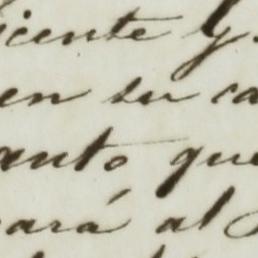 icente y
en su ca
anto que
ará al